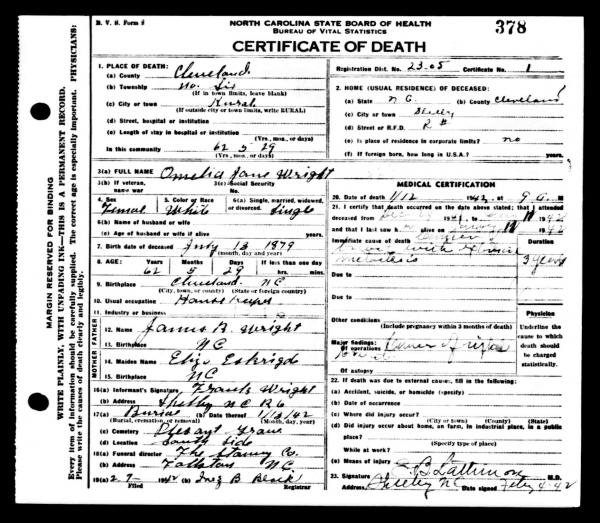 B. V. S. Form 8
NORTH CAROLINA STATE BOARD OF HEALTH
BUREAU OF VITAL STATISTICS
378
CERTIFICATE OF DEATH
Registration Dist. No. 23-05 Certificate No. 1
1. PLACE OF DEATH:
(a) County Cleveland
(b) Township No. Six
(If in town limits, leave blank)
(c) City or town Rural
(If outside city or town limits, write RURAL)
(d) Street, hospital or institution
(e) Length of stay in hospital or institution
(Yrs., mos., or days)
In this community 62 5 29
(Yrs., mos., or days)
2. HOME (USUAL RESIDENCE) OF DECEASED:
(a) State N C (b) County Cleveland
(c) City or town Shelby
(d) Street or R.F.D. R #
(e) Is place of residence in corporate limits? no
(f) If foreign born, how long in U.S.A.? yrs.
3(a) FULL NAME Omelia Jane Wright
3(b) If veteran, name war
3(c) Social Security No.
4. Sex Femal
5. Color or Race White
6(a) Single, married, widowed, or divorced. Single
6(b) Name of husband or wife
6(c) Age of husband or wife if alive years
7. Birth date of deceased July 13 1879
(month, day and year)
8. AGE: Years 62 Months 5 Days 29 If less than one day hrs. mins.
9. Birthplace Cleveland NC
(City, town, or county) (State or foreign country)
10. Usual occupation
11. Industry or business
FATHER
12. Name James B. Wright
13. Birthplace NC
MOTHER
14. Maiden Name Eskrige
15. Birthplace NC
16(a) Informant's Signature Frank Wright
(b) Address Shelby NC R6
17(a) Burial (b) Date thereof 1/13/42
(Burial, cremation, or removal) (Month, day, year)
(c) Cemetery Grove
(d) Location South Side
18(a) Funeral director The Stamey Co.
(b) Address Fallston NC.
19(a) 2-7- 1942 (b) Inez B Black
Registrar
MEDICAL CERTIFICATION
20. Date of death 1/12 1942, at
21. I certify that death occurred on the date above stated; that I attended
deceased from 1941 to 1942
and that I last saw h alive on 1942
Immediate cause of death
with
metastasis
Duration
3 years
Due to
Due to
Other conditions
(Include pregnancy within 3 months of death)
Major findings
Of operations
Of autopsy
Physician
Underline the cause to which death should be charged statistically.
22. If death was due to external causes, fill in the following:
(a) Accident, suicide, or homicide (specify)
(b) Date of occurrence
(c) Where did injury occur?
(City or town) (County) (State)
(d) Did injury occur about home, on farm, in industrial place, in a public place?
(Specify type of place)
While at work?
(e) Means of injury
23. Signature E. B. Lattimore M.D.
Address Shelby NC Date signed Feby 4-42
MARGIN RESERVED FOR BINDING
WRITE PLAINLY, WITH UNFADING INK—THIS IS A PERMANENT RECORD.
Every item of information should be carefully supplied. The correct age is especially important. PHYSICIANS:
Please write the causes of death clearly and legibly.